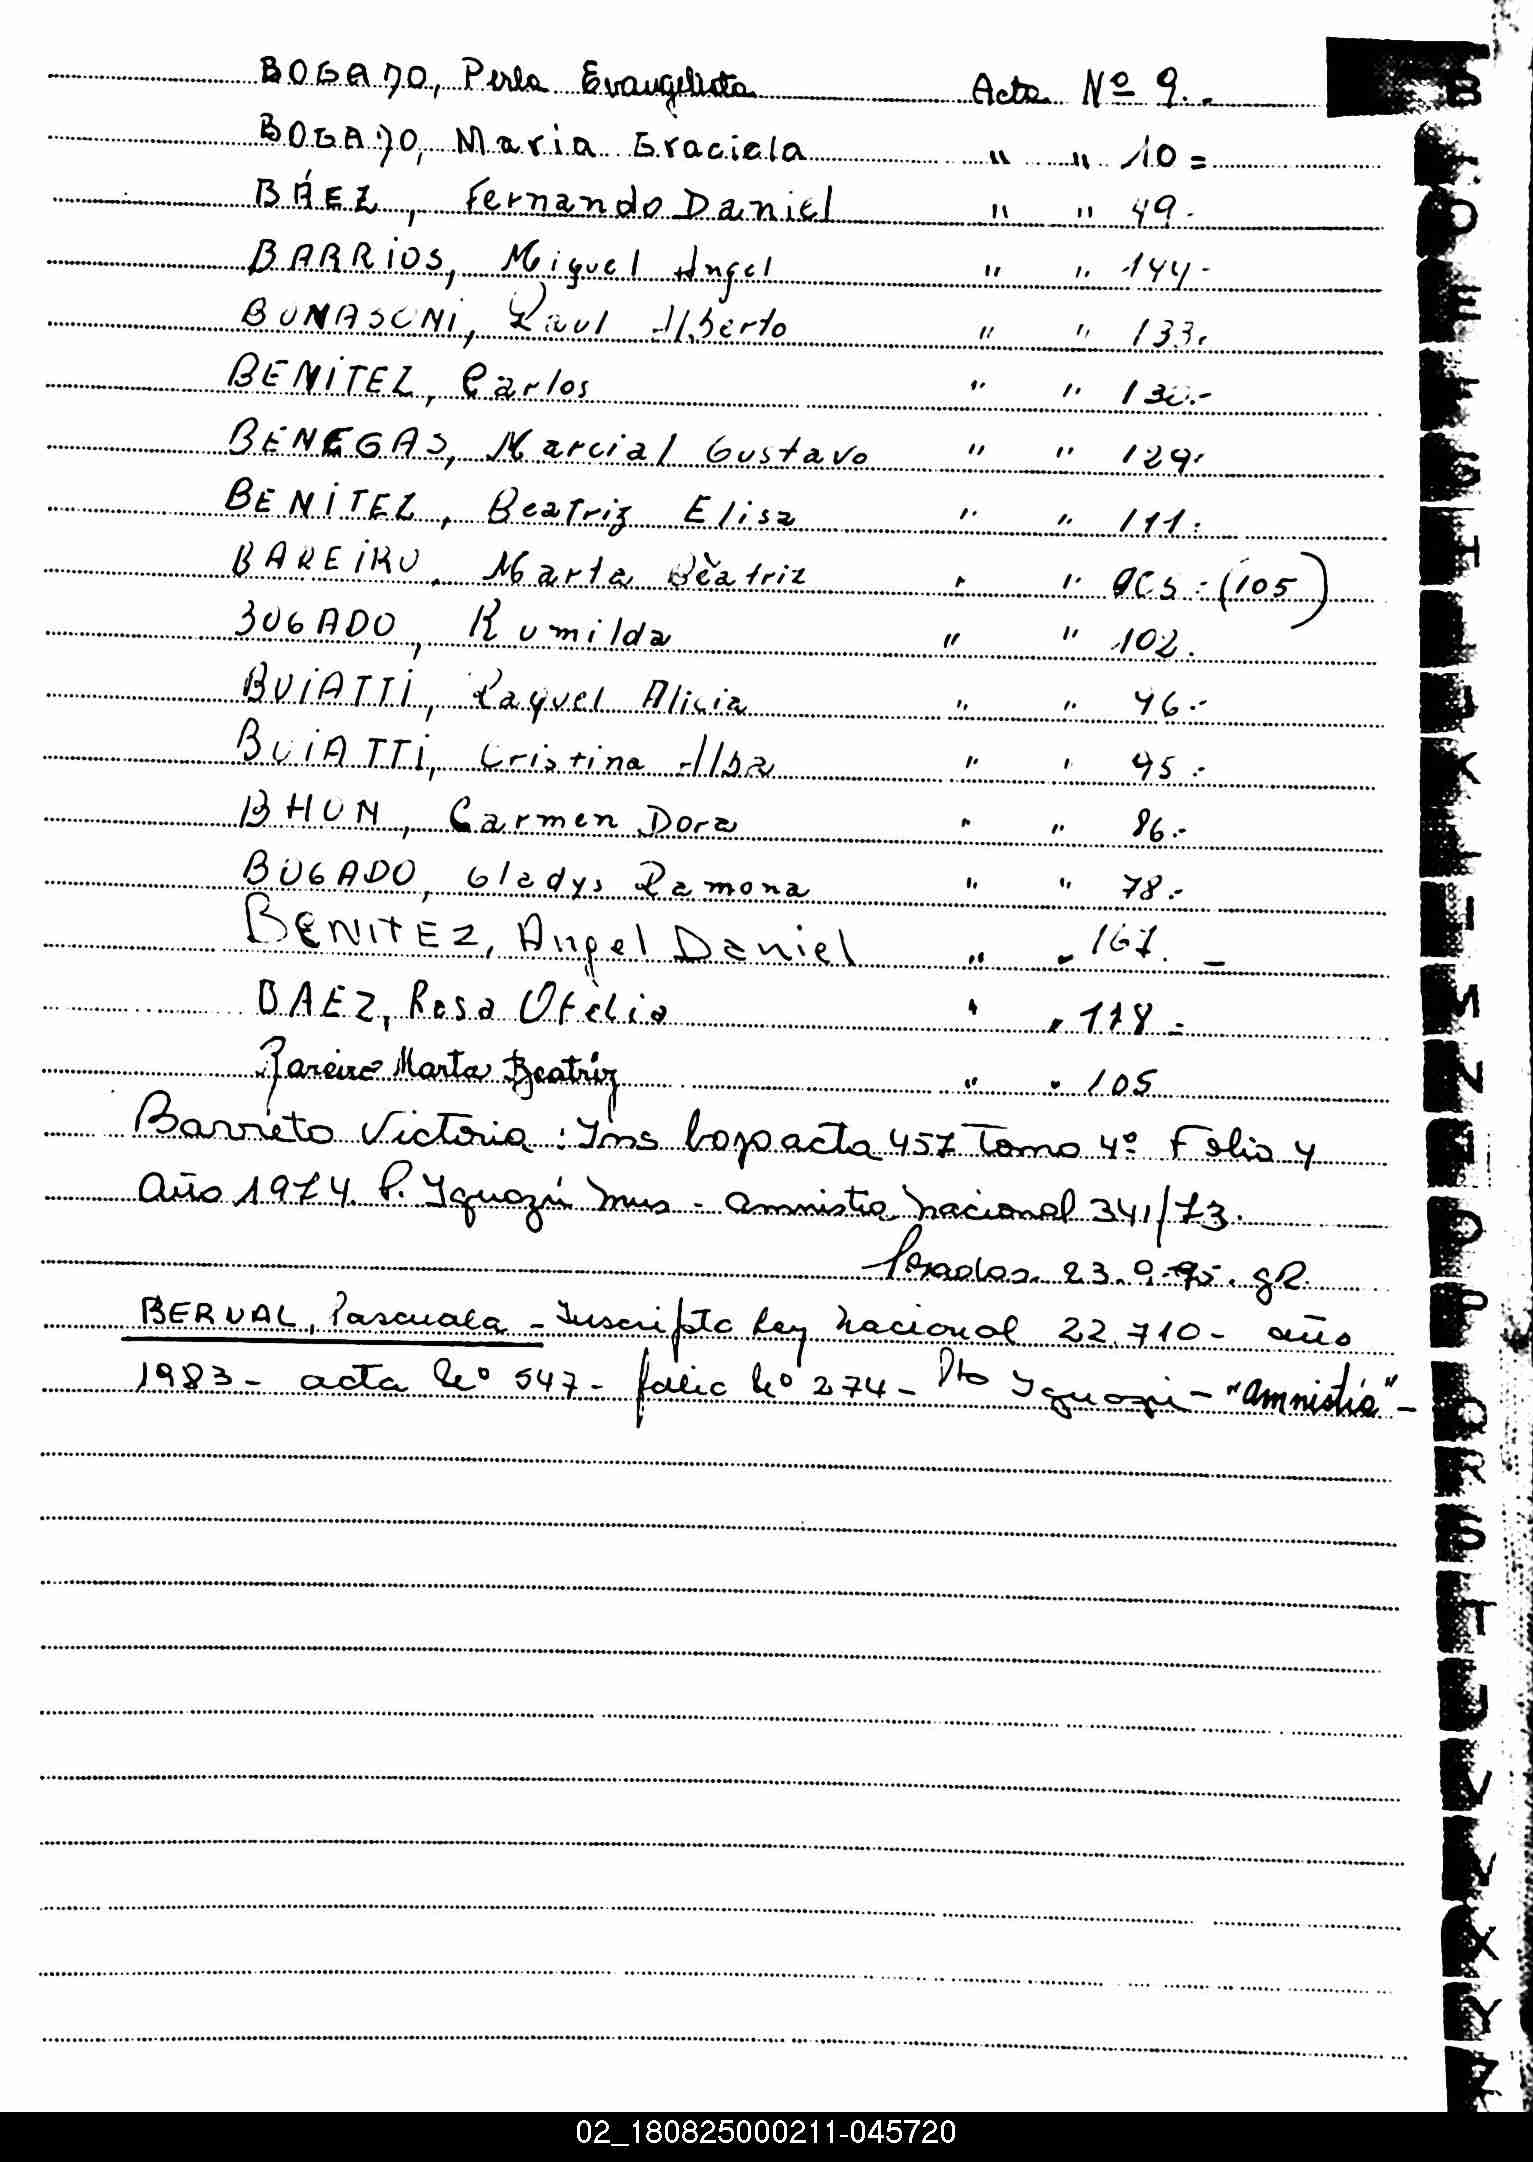 BOGADO, Perla Evangelista Acta Nº 9.
BOGADO, Maria Graciela " " 10 =
BÁEZ, Fernando Daniel " " 49.-
BARRIOS, Miguel Angel " " 144-
BONASONI, Raul Alberto " " 133.
BENITEZ, Carlos " " 130.-
BENEGAS, Marcial Gustavo " " 129.
BENITEZ, Beatriz Elisa " " 111.
BAREIRO, Marta Beatriz " " (105)
BOGADO, Romilda " " 102.
BUIATTI, Raquel Alicia " " 46.-
BUIATTI, Cristina Alba " " 45.-
BHUN, Carmen Dora " " 86.-
BOGADO, Gladys Ramona " " 78.-
BENITEZ, Angel Daniel " " 167. -
BAEZ, Rosa Ofelia " " 118 =
Bareiro Marta Beatriz " " 105
Barreto Victoria: Ins bajo acta 457 Tomo 4º Folio 4
Año 1974. P. Iguazú Mnes - amnistia nacional 341/73.
Posadas. 23.9.95. gR.
BERVAL, Pascuala - Inscripta Ley Nacional 22.710 - año
1983 - acta Nº 547 - folio Nº 274 - Pto Iguazú - "amnistía" -
B
D
E
F
G
H
I
J
K
L
M
N
O
P
Q
R
S
T
U
V
X
Y
Z
02_180825000211-045720